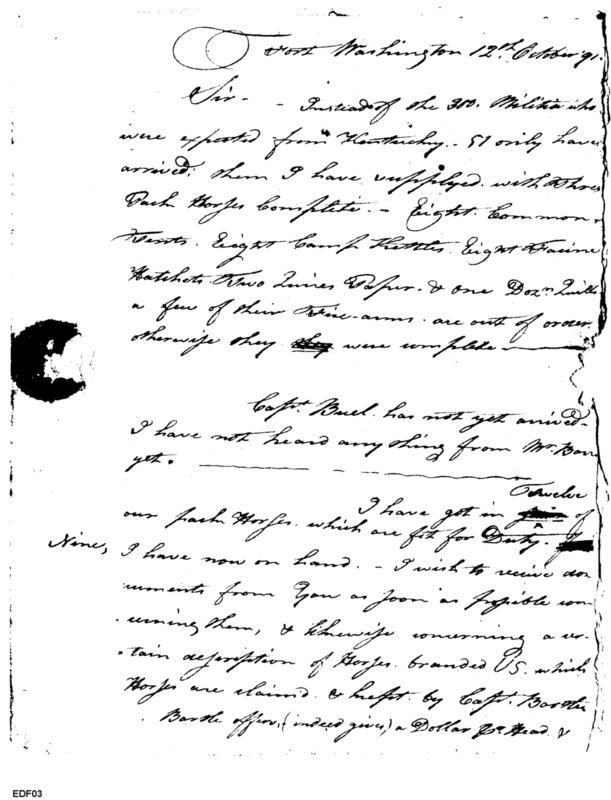 Fort Washington 12th October 91.
Sir - - Instead of the 300. Militia who
were expected from Kentucky - 51 only have
arrived: them I have supplyed with Three
Pack Horses Complete. - Eight Common
Tents. Eight Camp Kettles. Eight
Hatchets. Two Quires Paper. & one Dozn Quills
a few of their Fire-arms are out of order
otherwise they they were complete
Capt. Buel has not yet arrived -
I have not heard any thing from Mr. 
yet.
Twelve
I have got in of
our pack Horses which are fit for Duty.
Nine, I have now on hand. - I wish to receive 
from You as soon as possible con-
cerning them, & likewise concerning a cer-
tain description of Horses branded US. which
Horses are claimd & kept by Capt. Bartle
Bartle offers, (indeed gives) a Dollar Pr. Head &
EDF03